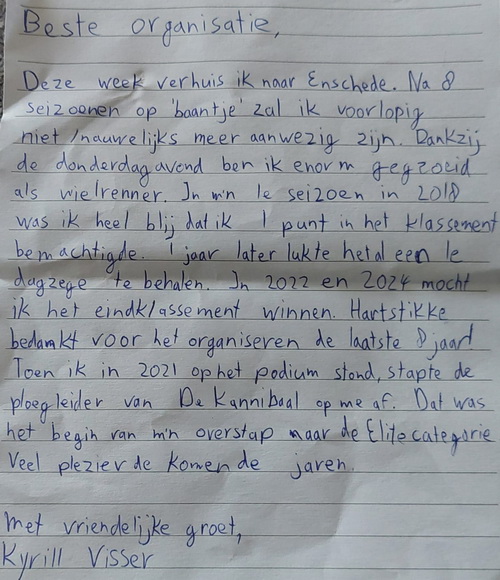 Beste organisatie,
Deze week verhuis ik naar Enschede. Na 8
seizoenen op 'baantje' zal ik voorlopig
niet/nauwelijks meer aanwezig zijn. Dankzij
de donderdagavond ben ik enorm gegroeid
als wielrenner. In m'n 1e seizoen in 2018
was ik heel blij dat ik 1 punt in het klassement
bemachtigde. 1 jaar later lukte het al een 1e
dagzege te behalen. In 2022 en 2024 mocht
ik het eindklassement winnen. Hartstikke
bedankt voor het organiseren de laatste 8 jaar!
Toen ik in 2021 op het podium stond, stapte de
ploegleider van De Kannibaal op me af. Dat was
het begin van m'n overstap naar de Elitecategorie
Veel plezier de komende jaren.
Met vriendelijke groet,
Kyrill Visser